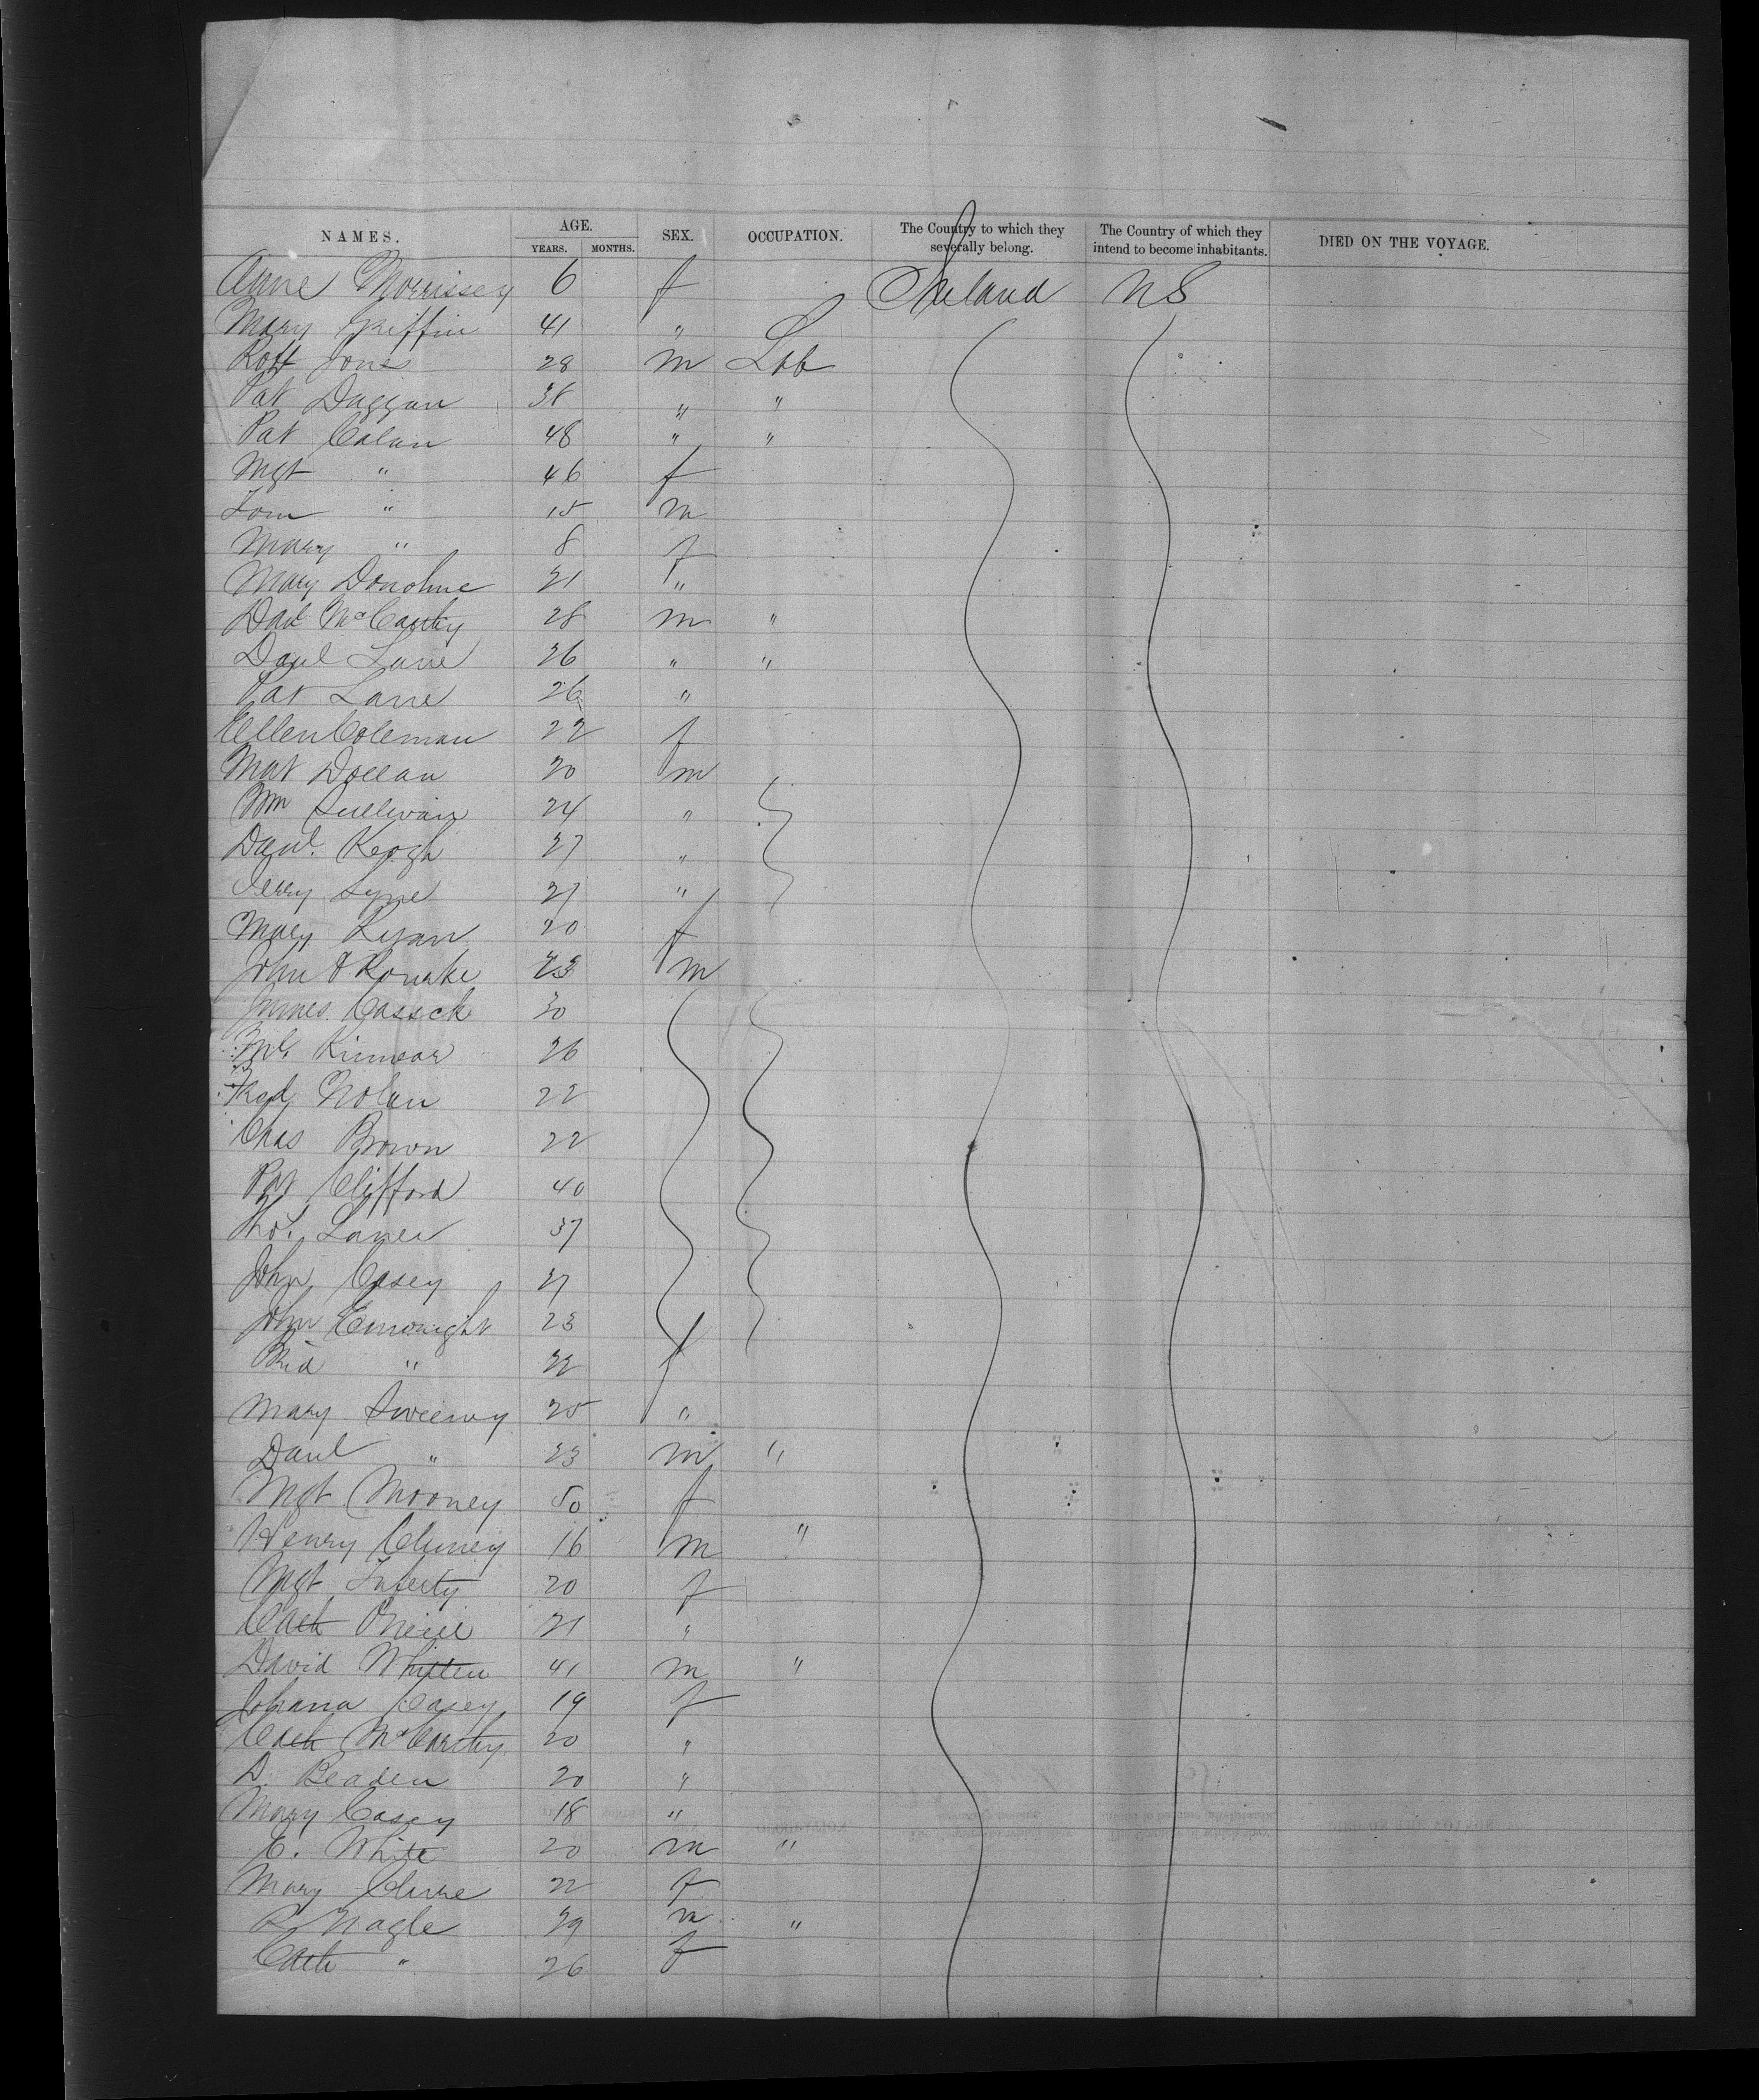 NAMES. AGE. YEARS. MONTHS. SEX. OCCUPATION. The Country to which they severally belong. The Country of which they intend to become inhabitants. DIED ON THE VOYAGE.
Anne Morrissey 6 f Ireland
Mary Griffin 41 "
Robt Jones 28 m Lab
Pat Duggan 38 " "
Pat Colan 48 " "
Mgt " 46 f
Tom " 15 m
Mary " 8 f
Mary Donohue 21 "
McCarthy 28 m "
Danl Lane 26 " "
Pat Lane 26 "
Ellen Coleman 22 f
Mat 20 m
Wm Sullivan 24 "
Danl. Keogh 27 "
Jerry Lyne 27 "
Mary Ryan 20 f
John O'Rourke 23 m
James 30
Kinnear 26
Nolan 22
Chas Brown 22
Pat Clifford 40
37
John Casey 27
John Enwright 23
Bid " 22 f
Mary Sweeney 25 "
Danl " 23 m "
Mgt Mooney 50 f
Henry 16 m "
Mgt 20 f
Cath ONeill 21 "
David Whitten 41 m "
Johana Casey 19 f
Cath McCarthy 20 "
D. Beaden 20 "
Mary Casey 18 "
C. White 20 m "
Mary 22 f
Nagle 29 m "
Cath " 26 f